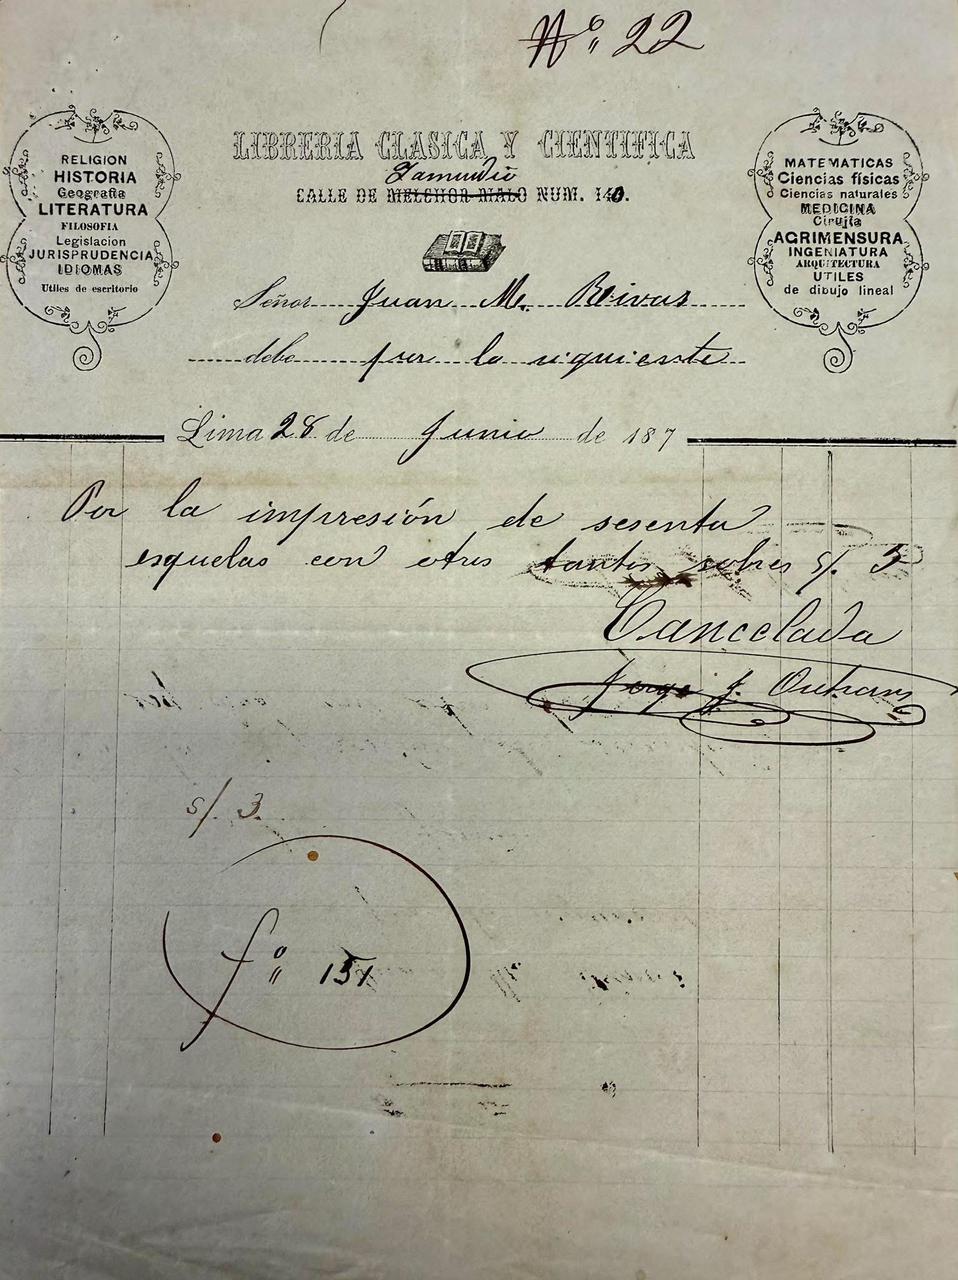 Nº 22
LIBRERIA CLASICA Y CIENTIFICA
Zamudio
CALLE DE MELCHOR MALO NUM. 140.
RELIGION
HISTORIA
Geografia
LITERATURA
FILOSOFIA
Legislacion
JURISPRUDENCIA
IDIOMAS
Utiles de escritorio
MATEMATICAS
Ciencias físicas
Ciencias naturales
MEDICINA
Cirujía
AGRIMENSURA
INGENIATURA
ARQUITECTURA
UTILES
de dibujo lineal
Señor Juan M. Reivas
debe por lo siguiente
Lima 28 de Junio de 187
Por la impresión de sesenta
esquelas con otros tantos sobres s/. 3
Cancelada
Jorge J.
s/. 3.
fº 151